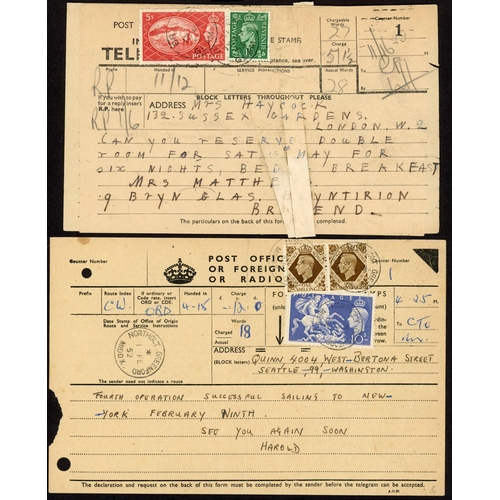 POST
STAMP.
Chargeable Words
Counter Number
5s
POSTAGE
27
1
TELE
Charge
Prefix
Handed in
SERVICE INSTRUCTIONS
Actual Words
By
11/12
28
BLOCK LETTERS THROUGHOUT PLEASE
If you wish to pay for a reply insert R.P. here
ADDRESS MRS HAYCOCK
132. SUSSEX GARDENS.
LONDON. W. 2
CAN YOU RESERVE DOUBLE
ROOM FOR SAT MAY FOR
SIX NIGHTS, BED BREAKFAST
MRS MATTHE
9 BRYN GLAS, BRYNTIRION
BR END
The particulars on the back of this completed.
Counter Number
POST OFFIC
OR FOREIGN
OR RADIO
Counter Number
1
Prefix
Route Index
If ordinary or Code rate, insert ORD or CDE.
Handed in
Charge
CW
ORD
4-15
-12 0
4-25
Date Stamp of Office of Origin
Route and Service Instructions
Charged
18
10/-
To CTO
ADDRESS
(BLOCK letters)
QUINN, 4004 WEST-BERTONA STREET
SEATTLE, 99, WASHINGTON.
GREENFORD
NORTHOLT
FE
52
MIDDX
The sender need not indicate a route
FOURTH OPERATION SUCCESSFUL SAILING TO NEW-
-YORK FEBRUARY NINTH.
SEE YOU AGAIN SOON
HAROLD
The declaration and request on the back of this form must be completed by the sender before the telegram can be accepted.